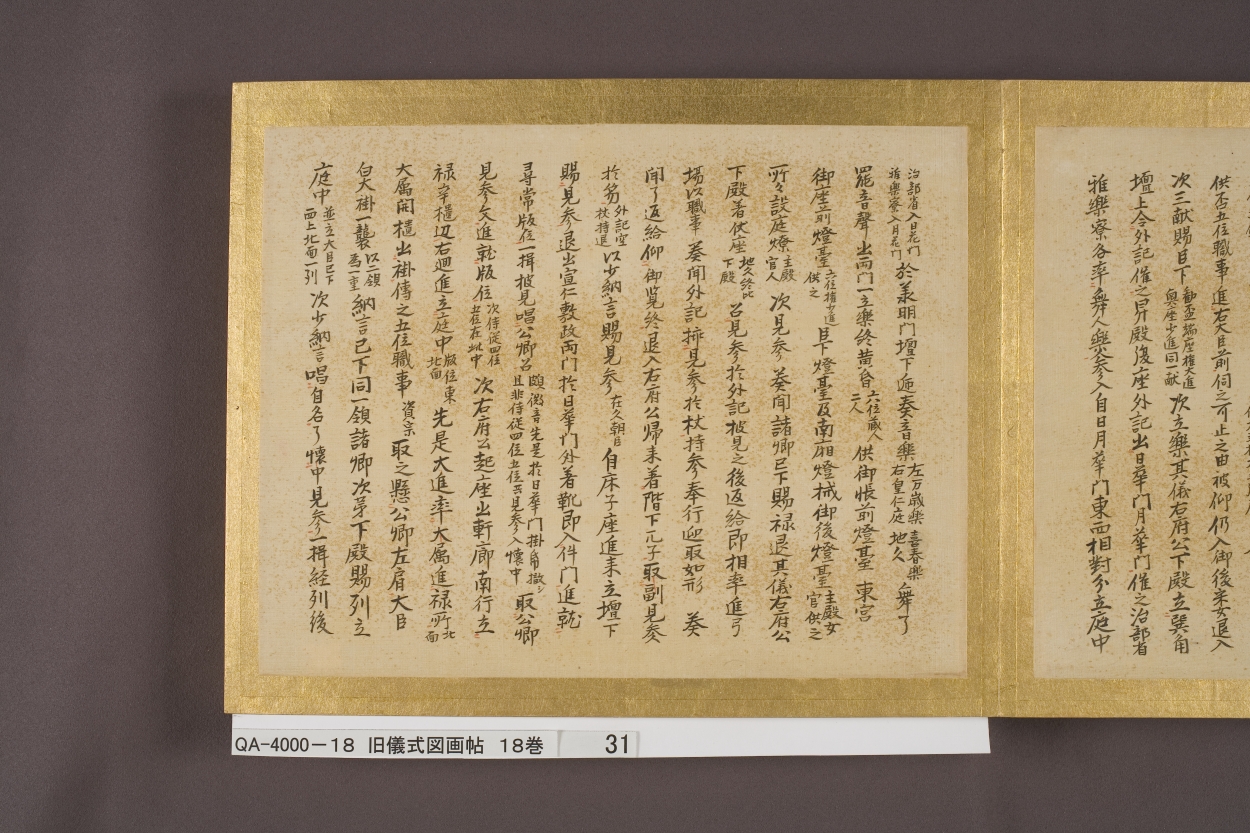 供盃五位職事進右大臣前伺之可止之由被仰仍入御後采女退入
次三献賜臣下勧盃端座権大進奥座少進同一献次立楽其儀右府公下殿立巽角
壇上令外記催之昇殿復座外記出日華門月華門催之治部省
雅楽寮各率舞人楽人参入自日月華門東西相対分立庭中
治部省入日花門雅楽寮入月花門於承明門壇下逓奏音楽左万歳楽喜春楽右皇仁庭地久舞了
罷音声出両門立楽終黄昏六位蔵人二人供御帳前燈台東宮
御座前燈台六位権少進供之且下燈台及南廂燈械御後燈台主殿女官供之
所々設庭燎主殿官人次見参奏聞諸卿已下賜禄退其儀右府公
下殿着伏座地久終比下殿召見参於外記披見之後返給即相率進弓
場以職事奏聞外記挿見参於杖持参奉行迎取如形奏
聞了返給仰御覧終退入右府公帰来着階下兀子取副見参
於笏外記空杖持退以少納言賜見参在久朝臣自床子座進来立壇下
賜見参退出宣仁敷政両門於日華門外着靴即入件門進就
尋常版位一揖披見唱公卿召頗微音先是於日華門掛角撤之且非侍従四位五位交見参入懐中取公卿
見参文進就版位次侍従四位五位在此中次右府公起座出軒廊南行立
禄辛櫃辺右廻進立庭中版位東北面先是大進率大属進禄所北面
大属開櫃出褂伝之五位職事資宗取之懸公卿左肩大臣
白大褂一襲以二領為一重納言已下同一領諸卿次第下殿賜列立
庭中並立大臣已下西上北面一列次少納言唱自名了懐中見参一揖経列後
QA-4000-18 旧儀式図画帖 18巻 31